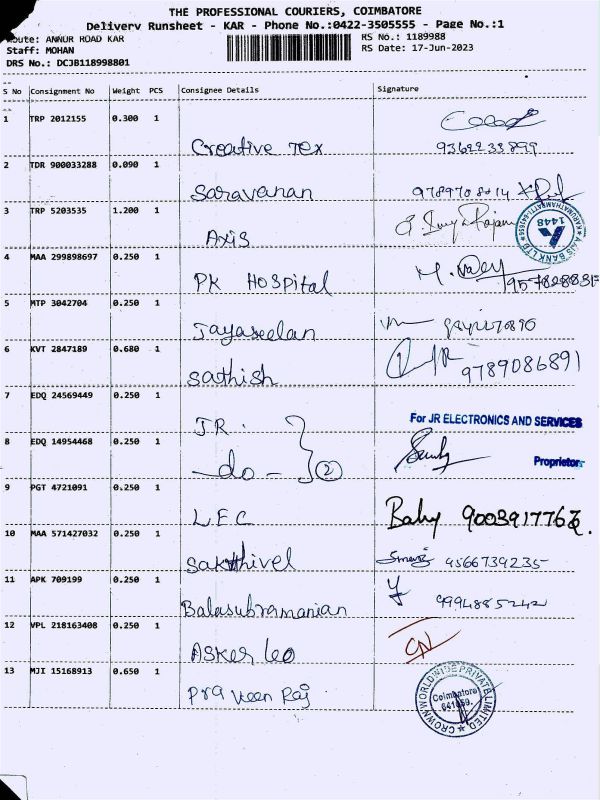 THE PROFESSIONAL COURIERS, COIMBATORE
Delivery Runsheet - KAR - Phone No.:0422-3505555 - Page No.:1
Route: ANNUR ROAD KAR
RS No.: 1189988
Staff: MOHAN
RS Date: 17-Jun-2023
DRS No.: DCJB118998801
S No Consignment No Weight PCS Consignee Details Signature
1 TRP 2012155 0.300 1
Creative Tex 9362233899
2 TDR 900033288 0.090 1
Saravanan
3 TRP 5203535 1.200 1
Axis
AXIS BANK LTD
KARUMATHAMPATTI-641659
1448
4 MAA 299898697 0.250 1
PK Hospital
5 MTP 3042704 0.250 1
Jayaseelan
6 KVT 2847189 0.680 1
Sathish 9789086891
7 EDQ 24569449 0.250 1
JR. For JR ELECTRONICS AND SERVICES
8 EDQ 14954468 0.250 1
-do- 2 Proprietor
9 PGT 4721091 0.250 1
LEC Baby
10 MAA 571427032 0.250 1
Sakthivel 9566739235
11 APK 709199 0.250 1
Balasubramanian 9994885242
12 VPL 218163408 0.250 1
Asker Leo
13 MJI 15168913 0.650 1
Praveen Raj
CROWN WORLDWIDE PRIVATE LIMITED
Coimbatore
641659.